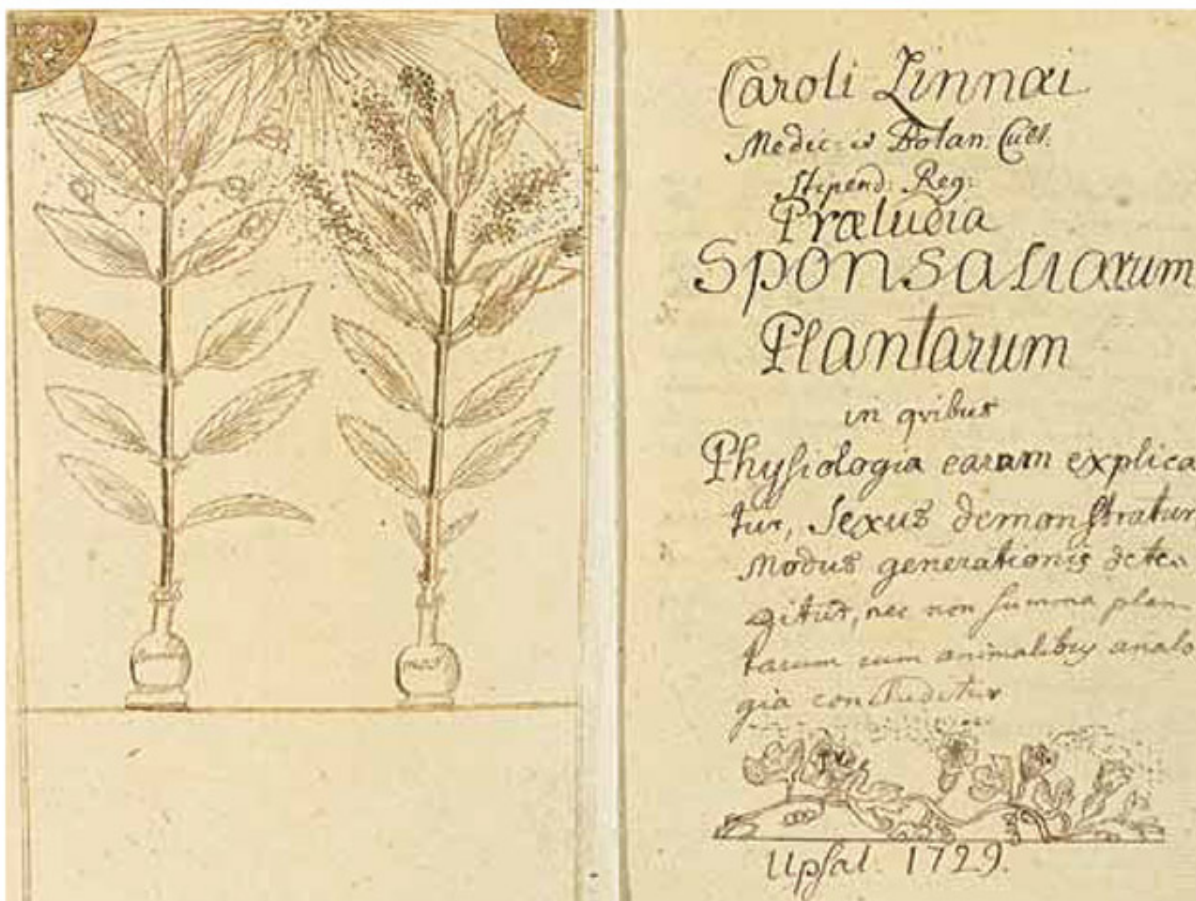 Caroli Linnæi
Medic: & Botan. Cult.
Stipend: Reg:
Præludia
Sponsaliarum
Plantarum
in qvibus
Physiologia earum explica
tur, Sexus demonstratur
Modus generationis dete-
gitur, nec non summa plan-
tarum cum animalibus analo
gia concluditur
Upsal. 1729.